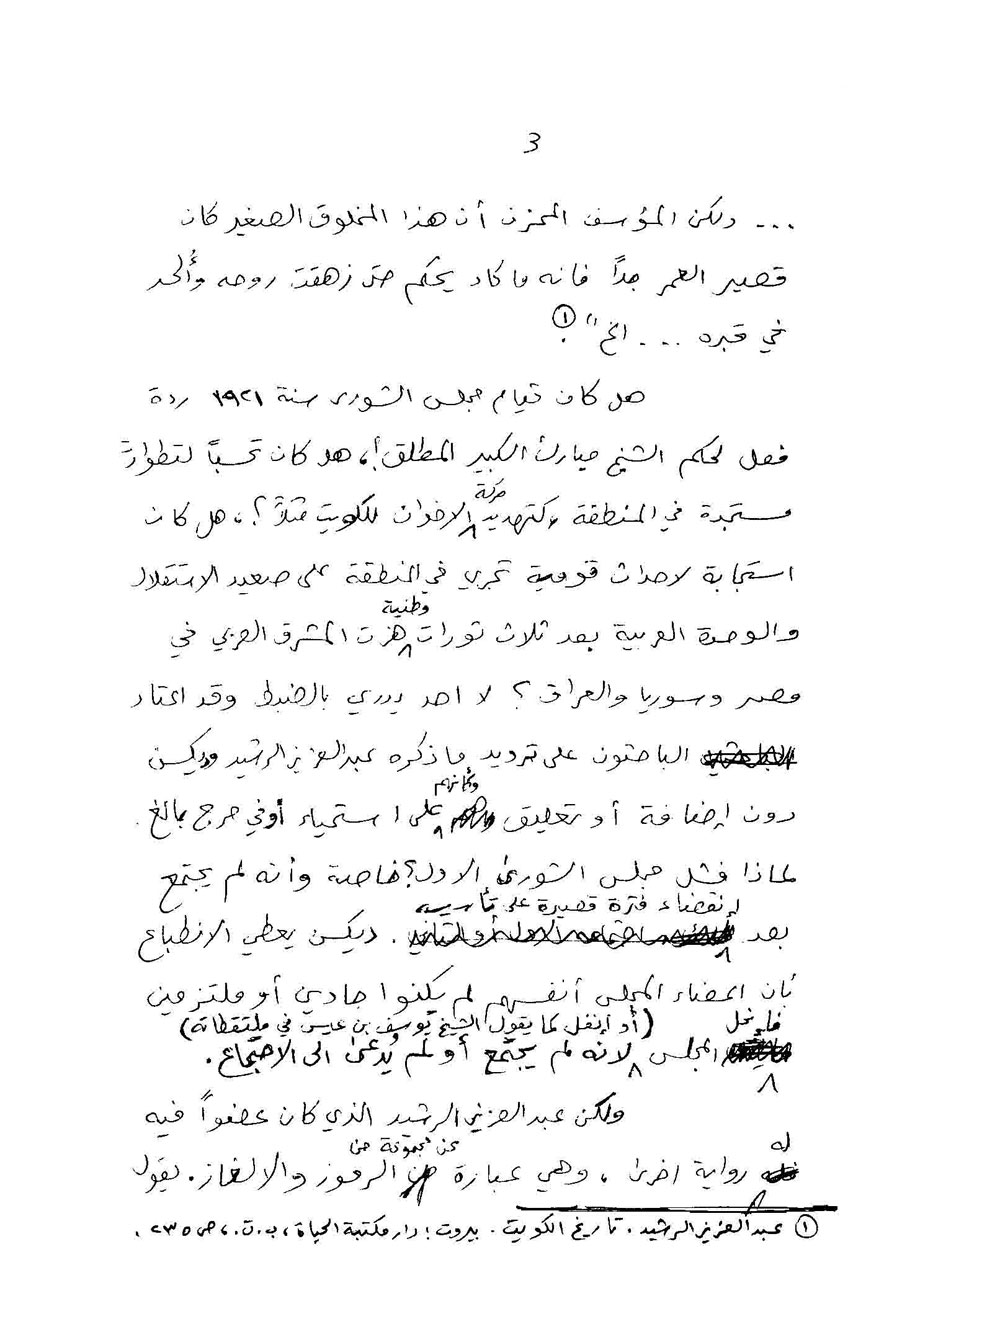 3
... ولكن المؤسف المحزن أن هذا المخلوق الصغير كان
قصير العمر جداً فانه ما كاد يحكم حتى زهقت روحه وأُلحد
في قبره ... الخ" ①.
هل كان قيام مجلس الشورى سنة ١٩٢١ ردة
فعل لحكم الشيخ مبارك الكبير المطلق؟، هل كان تحسباً لتطورات
مستجدة في المنطقة كتهديد حركة الاخوان للكويت مثلاً؟، هل كان
استجابة لاحداث قومية تجري في المنطقة على صعيد الاستقلال
والوحدة العربية بعد ثلاث ثورات وطنية هزت المشرق العربي في
مصر وسوريا والعراق؟ لا احد يدري بالضبط وقد اعتاد
الباحثون على ترديد ما ذكره عبدالعزيز الرشيد وديكسن
دون إضافة أو تعليق وكأنهم على استحياء أو في حرج بالغ.
لماذا فشل مجلس الشورى الاول؟ خاصة وأنه لم يجتمع
بعد إنقضاء فترة قصيرة على تأسيسه. ديكسن يعطي الانطباع
بأن اعضاء المجلس أنفسهم لم يكنوا جادين أو ملتزمين
فإنحل المجلس (أو إنفل كما يقول الشيخ يوسف بن عيسى في ملتقطاته)
لانه لم يجتمع أو لم يُدعى الى الاجتماع.
ولكن عبدالعزيز الرشيد الذي كان عضواً فيه
له رواية اخرى، وهي عبارة عن مجموعة من الرموز والالغاز. يقول
① عبدالعزيز الرشيد. تاريخ الكويت. بيروت: دار مكتبة الحياة، ب.ت.، ص ٢٣٥.